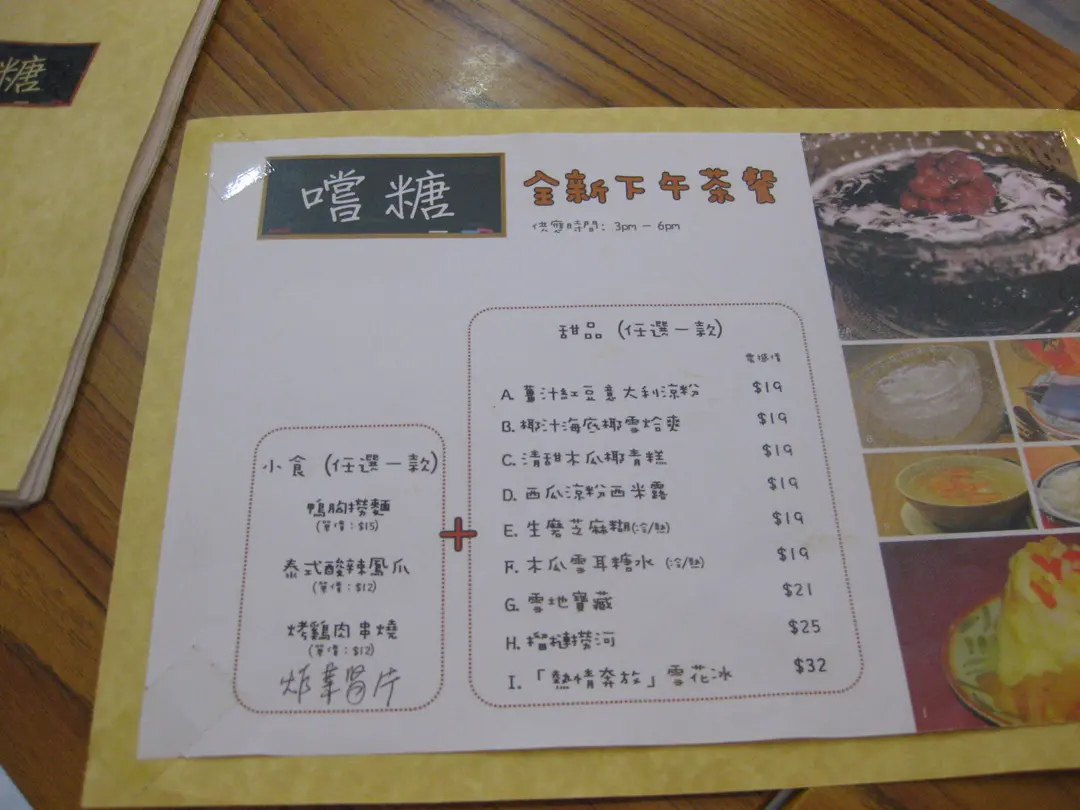 糖
嚐糖
全新下午茶餐
供應時間: 3pm - 6pm
小食 (任選一款)
鴨胸撈麵
(單價：$15)
泰式酸辣鳳爪
(單價：$12)
烤雞肉串燒
(單價：$12)
片
+
甜品 (任選一款)
A. 薑汁紅豆意大利涼粉 $19
B. 椰汁海底椰雪焓爽 $19
C. 清甜木瓜椰青糕 $19
D. 西瓜涼粉西米露 $19
E. 生磨芝麻糊(冷/熱) $19
F. 木瓜雪耳糖水 (冷/熱) $19
G. 雪地寶藏 $21
H. 榴槤撈河 $25
I. 「熱情奔放」雪花冰 $32